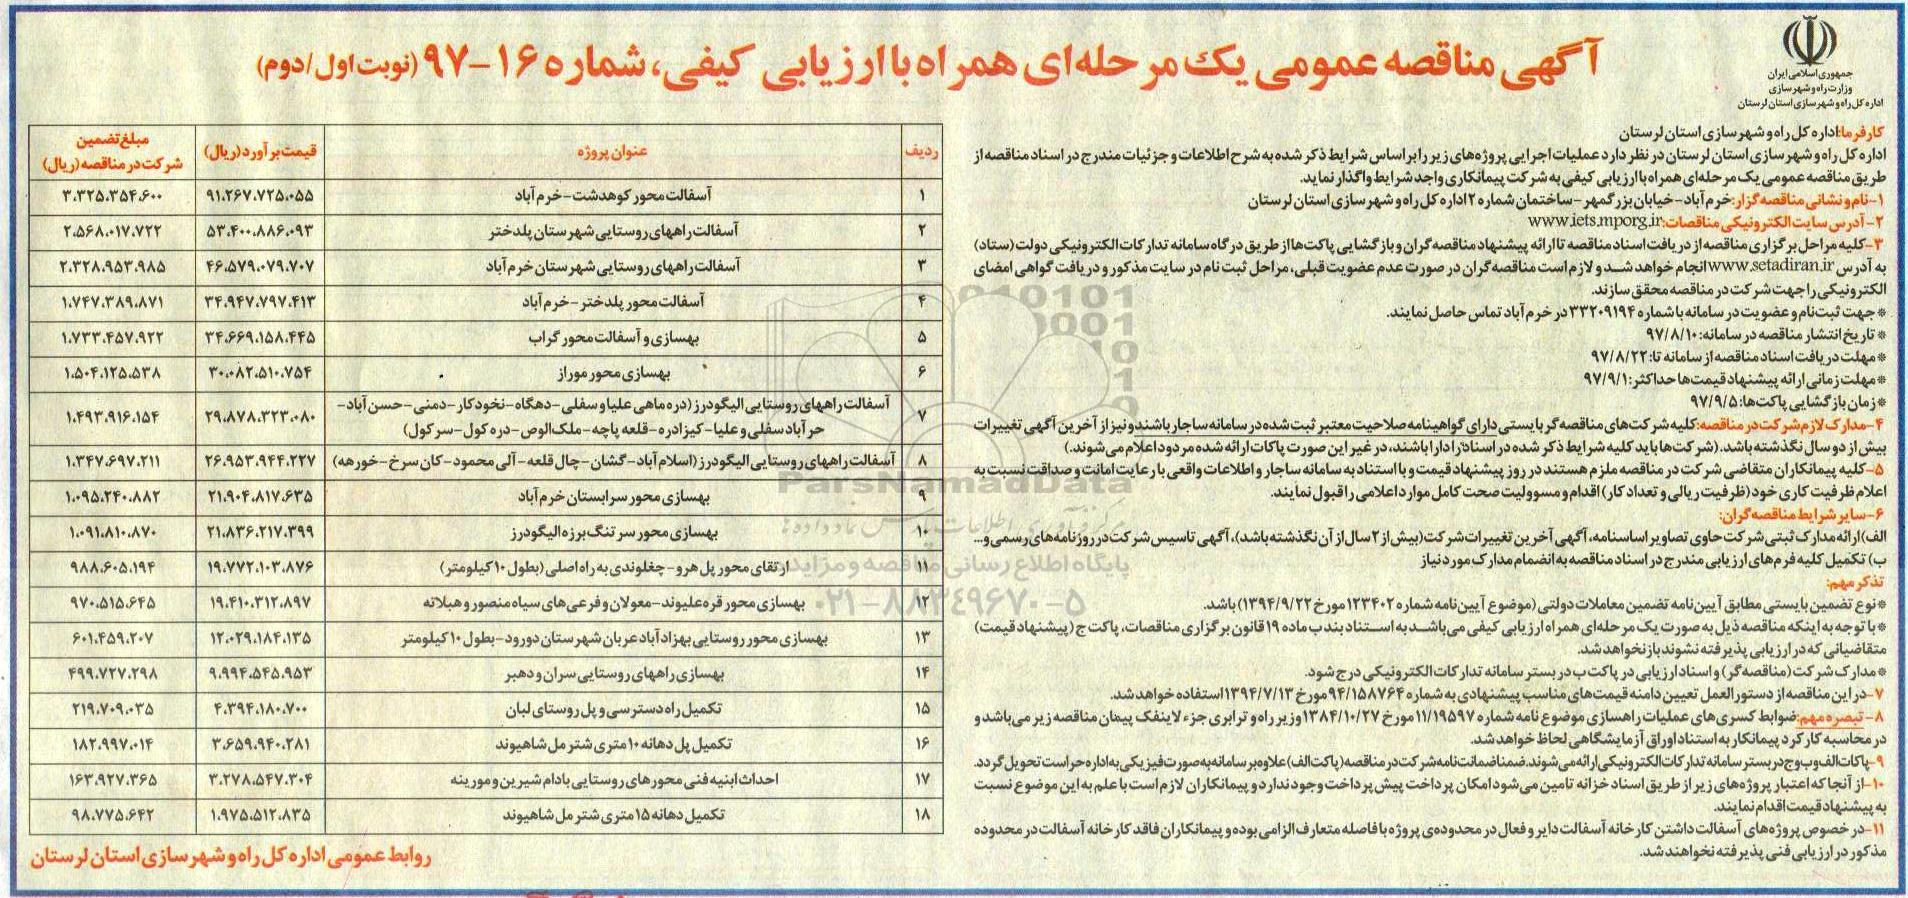 جمهوری اسلامی ایران
وزارت راه و شهرسازی
اداره کل راه و شهرسازی استان لرستان
آگهی مناقصه عمومی یک مرحله‌ای همراه با ارزیابی کیفی، شماره ۱۶-۹۷ (نوبت اول/دوم)
کارفرما: اداره کل راه و شهرسازی استان لرستان
اداره کل راه و شهرسازی استان لرستان در نظر دارد عملیات اجرایی پروژه‌های زیر را بر اساس شرایط ذکر شده به شرح اطلاعات و جزئیات مندرج در اسناد مناقصه از
طریق مناقصه عمومی یک مرحله‌ای همراه با ارزیابی کیفی به شرکت پیمانکاری واجد شرایط واگذار نماید.
۱-نام و نشانی مناقصه گزار: خرم آباد-خیابان بزرگمهر-ساختمان شماره ۲ اداره کل راه و شهرسازی استان لرستان
۲-آدرس سایت الکترونیکی مناقصات: www.iets.mporg.ir
۳-کلیه مراحل برگزاری مناقصه از دریافت اسناد مناقصه تا ارائه پیشنهاد مناقصه گران و بازگشایی پاکت‌ها از طریق درگاه سامانه تدارکات الکترونیکی دولت (ستاد)
به آدرس www.setadiran.ir انجام خواهد شد و لازم است مناقصه گران در صورت عدم عضویت قبلی، مراحل ثبت نام در سایت مذکور و دریافت گواهی امضای
الکترونیکی را جهت شرکت در مناقصه محقق سازند.
*جهت ثبت نام و عضویت در سامانه با شماره ۳۳۲۰۹۱۹۴ در خرم آباد تماس حاصل نمایند.
* تاریخ انتشار مناقصه در سامانه: ۹۷/۸/۱۰
*مهلت دریافت اسناد مناقصه از سامانه تا: ۹۷/۸/۲۲
*مهلت زمانی ارائه پیشنهاد قیمت‌ها حداکثر: ۹۷/۹/۱
*زمان بازگشایی پاکت‌ها: ۹۷/۹/۵
۴-مدارک لازم شرکت در مناقصه: کلیه شرکت‌های مناقصه گر بایستی دارای گواهینامه صلاحیت معتبر ثبت شده در سامانه ساجار باشند و نیز از آخرین آگهی تغییرات
بیش از دو سال نگذشته باشد. (شرکت‌ها باید کلیه شرایط ذکر شده در اسناد را دارا باشند، در غیر این صورت پاکات ارائه شده مردود اعلام می‌شوند.)
۵-کلیه پیمانکاران متقاضی شرکت در مناقصه ملزم هستند در روز پیشنهاد قیمت و با استناد به سامانه ساجار و اطلاعات واقعی با رعایت امانت و صداقت نسبت به
اعلام ظرفیت کاری خود (ظرفیت ریالی و تعداد کار) اقدام و مسوولیت صحت کامل موارد اعلامی را قبول نمایند.
۶-سایر شرایط مناقصه گران:
الف) ارائه مدارک ثبتی شرکت حاوی تصاویر اساسنامه، آگهی آخرین تغییرات شرکت (بیش از ۲ سال از آن نگذشته باشد)، آگهی تاسیس شرکت در روزنامه‌های رسمی و...
ب) تکمیل کلیه فرم‌های ارزیابی مندرج در اسناد مناقصه به انضمام مدارک مورد نیاز
تذکر مهم:
*نوع تضمین بایستی مطابق آیین نامه تضمین معاملات دولتی (موضوع آیین نامه شماره ۱۲۳۴۰۲ مورخ ۱۳۹۴/۹/۲۲) باشد.
*با توجه به اینکه مناقصه ذیل به صورت یک مرحله‌ای همراه ارزیابی کیفی می‌باشد به استناد بند ب ماده ۱۹ قانون برگزاری مناقصات، پاکت ج (پیشنهاد قیمت)
متقاضیانی که در ارزیابی پذیرفته نشوند باز نخواهد شد.
*مدارک شرکت (مناقصه گر) و اسناد ارزیابی در پاکت ب در بستر سامانه تدارکات الکترونیکی درج شود.
۷-در این مناقصه از دستورالعمل تعیین دامنه قیمت‌های مناسب پیشنهادی به شماره ۹۴/۱۵۸۷۶۴ مورخ ۱۳۹۴/۷/۱۳ استفاده خواهد شد.
۸-تبصره مهم: ضوابط کسری‌های عملیات راهسازی موضوع نامه شماره ۱۱/۱۹۵۹۷ مورخ ۱۳۸۴/۱۰/۲۷ وزیر راه و ترابری جزء لاینفک پیمان مناقصه زیر می‌باشد و
در محاسبه کارکرد پیمانکار به استناد اوراق آزمایشگاهی لحاظ خواهد شد.
۹-پاکات الف و ب و ج در بستر سامانه تدارکات الکترونیکی ارائه می‌شوند. ضمنا ضمانت نامه شرکت در مناقصه (پاکت الف) علاوه بر سامانه به صورت فیزیکی به اداره حراست تحویل گردد.
۱۰-از آنجا که اعتبار پروژه‌های زیر از طریق اسناد خزانه تامین می‌شود امکان پرداخت پیش پرداخت وجود ندارد و پیمانکاران لازم است با علم به این موضوع نسبت
به پیشنهاد قیمت اقدام نمایند.
۱۱-در خصوص پروژه‌های آسفالت داشتن کارخانه آسفالت دایر و فعال در محدوده‌ی پروژه با فاصله متعارف الزامی بوده و پیمانکاران فاقد کارخانه آسفالت در محدوده
مذکور در ارزیابی فنی پذیرفته نخواهند شد.
ردیف عنوان پروژه قیمت برآورد (ریال) مبلغ تضمین شرکت در مناقصه (ریال)
۱ آسفالت محور کوهدشت-خرم آباد ۹۱،۲۶۷،۷۲۵،۰۵۵ ۳،۳۲۵،۳۵۴،۶۰۰
۲ آسفالت راههای روستایی شهرستان پلدختر ۵۳،۴۰۰،۸۸۶،۰۹۳ ۲،۵۶۸،۰۱۷،۷۲۲
۳ آسفالت راههای روستایی شهرستان خرم آباد ۴۶،۵۷۹،۰۷۹،۷۰۷ ۲،۳۲۸،۹۵۳،۹۸۵
۴ آسفالت محور پلدختر-خرم آباد ۳۴،۹۴۷،۷۹۷،۴۱۳ ۱،۷۴۷،۳۸۹،۸۷۱
۵ بهسازی و آسفالت محور گراب ۳۴،۶۶۹،۱۵۸،۴۴۵ ۱،۷۳۳،۴۵۷،۹۲۲
۶ بهسازی محور موراز ۳۰،۰۸۲،۵۱۰،۷۵۴ ۱،۵۰۴،۱۲۵،۵۳۸
۷ آسفالت راههای روستایی الیگودرز (دره ماهی علیا و سفلی-دهگاه-نخودکار-دمنی-حسن آباد-
حرآباد سفلی و علیا-کیزادره-قلعه پاچه-ملک الوص-دره کول-سرکول) ۲۹،۸۷۸،۳۲۳،۰۸۰ ۱،۴۹۳،۹۱۶،۱۵۴
۸ آسفالت راههای روستایی الیگودرز (اسلام آباد-گشان-چال قلعه-آلی محمود-کان سرخ-خورهه) ۲۶،۹۵۳،۹۴۴،۲۲۷ ۱،۳۴۷،۶۹۷،۲۱۱
۹ بهسازی محور سرابستان خرم آباد ۲۱،۹۰۴،۸۱۷،۶۳۵ ۱،۰۹۵،۲۴۰،۸۸۲
۱۰ بهسازی محور سرتنگ برزه الیگودرز ۲۱،۸۳۶،۲۱۷،۳۹۹ ۱،۰۹۱،۸۱۰،۸۷۰
۱۱ ارتقای محور پل هرو-چغلوندی به راه اصلی (بطول ۱۰ کیلومتر) ۱۹،۷۷۲،۱۰۳،۸۷۶ ۹۸۸،۶۰۵،۱۹۴
۱۲ بهسازی محور قره علیوند-معولان و فرعی‌های سیاه منصور و هبلاته ۱۹،۴۱۰،۳۱۲،۸۹۷ ۹۷۰،۵۱۵،۶۴۵
۱۳ بهسازی محور روستایی بهزادآباد عربان شهرستان دورود-بطول ۱۰ کیلومتر ۱۲،۰۲۹،۱۸۴،۱۳۵ ۶۰۱،۴۵۹،۲۰۷
۱۴ بهسازی راههای روستایی سران و دهبر ۹،۹۹۴،۵۴۵،۹۵۳ ۴۹۹،۷۲۷،۲۹۸
۱۵ تکمیل راه دسترسی و پل روستای لبان ۴،۳۹۴،۱۸۰،۷۰۰ ۲۱۹،۷۰۹،۰۳۵
۱۶ تکمیل پل دهانه ۱۰ متری شترمل شاهیوند ۳،۶۵۹،۹۴۰،۲۸۱ ۱۸۲،۹۹۷،۰۱۴
۱۷ احداث ابنیه فنی محورهای روستایی بادام شیرین و مورینه ۳،۲۷۸،۵۴۷،۳۰۴ ۱۶۳،۹۲۷،۳۶۵
۱۸ تکمیل دهانه ۱۵ متری شترمل شاهیوند ۱،۹۷۵،۵۱۲،۸۳۵ ۹۸،۷۷۵،۶۴۲
روابط عمومی اداره کل راه و شهرسازی استان لرستان
ParsNamadData
پایگاه اطلاع رسانی مناقصه و مزایده
۰۲۱-۸۸۳۴۹۶۷۰-۵